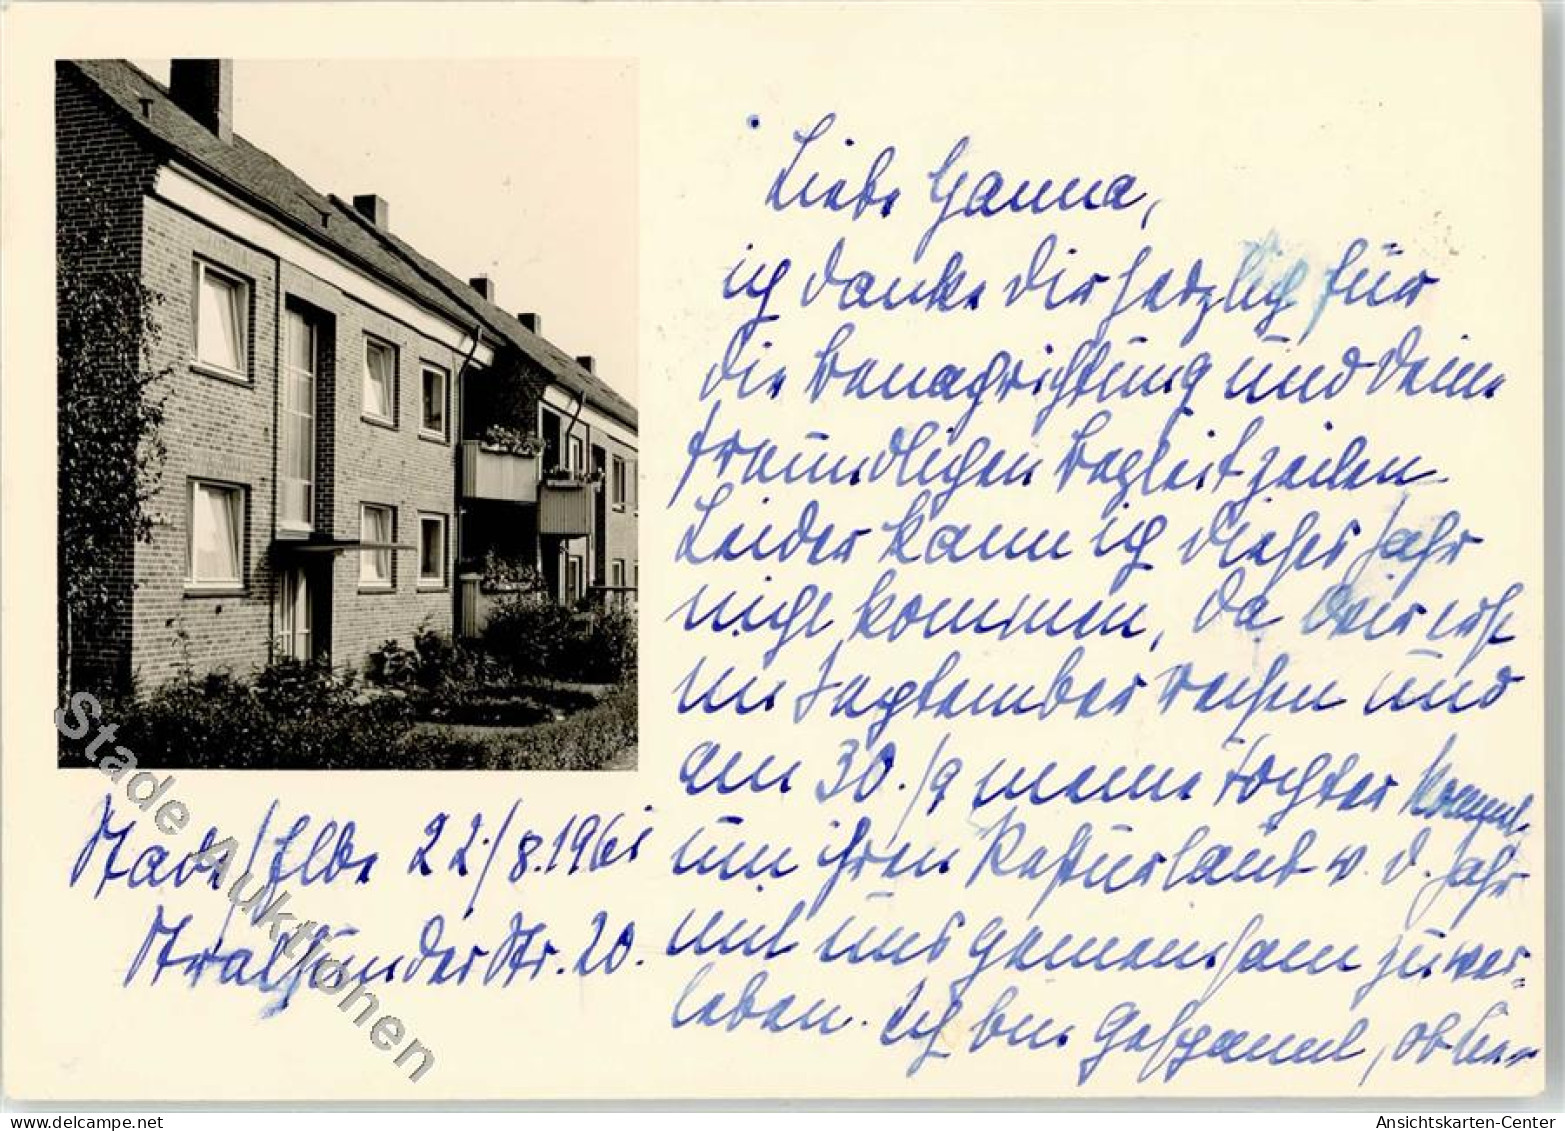 Liebe Hanna,
ich danke Dir herzlich für
die Benachrichtigung und Deine
freundlichen Begleitzeilen.
Leider kann ich dieses Jahr
nicht kommen, da wir erst
im September reisen und
am 30./9 meine Tochter kommt,
um ihren Resturlaub v. d. Jahr
mit uns gemeinsam zu ver-
leben. Ich bin gespannt, ob
Stade/Elbe 22./8.196
Stralsunder Str. 20.
Stade Auktionen
delcampe.net
Ansichtskarten-Center